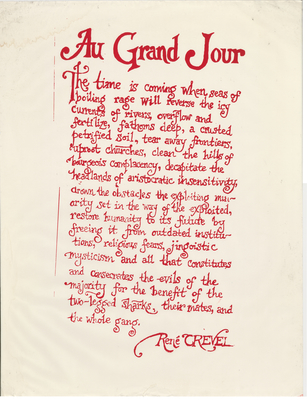 Au Grand Jour
The time is coming when seas of
boiling rage will reverse the icy
currents of rivers, overflow and
fertilize, fathoms deep, a crusted
petrified soil, tear away frontiers,
uproot churches, clean the hills of
bourgeois complacency, decapitate the
headlands of aristocratic insensitivity,
drown the obstacles the exploiting min-
ority set in the way of the exploited,
restore humanity to its future by
freeing it from outdated institu-
tions, religious fears, jingoistic
mysticism and all that constitutes
and consecrates the evils of the
majority for the benefit of the
two-legged sharks, their mates, and
the whole gang.
René CREVEL